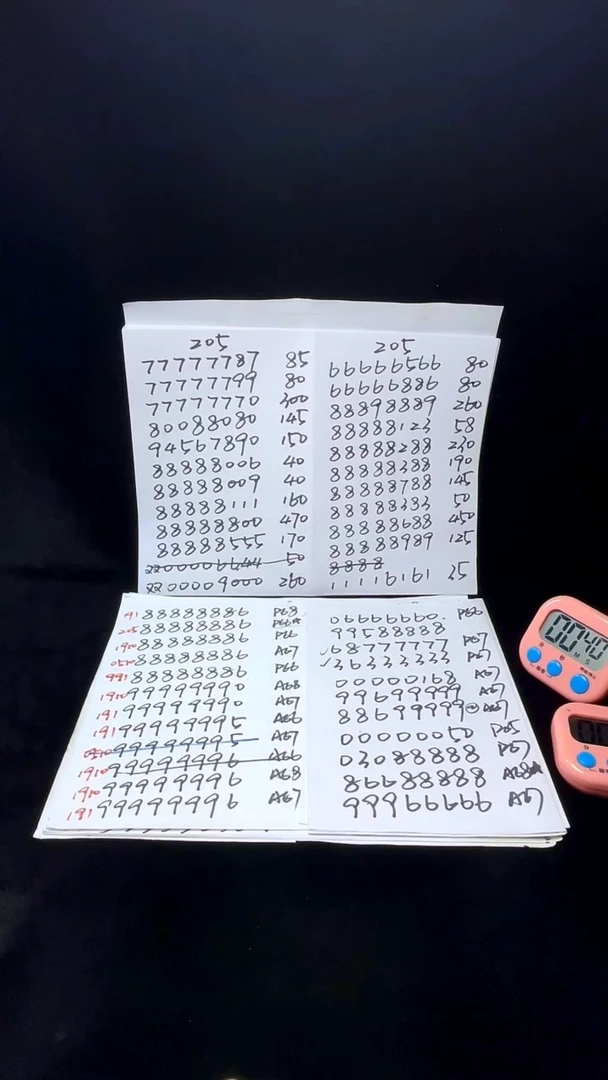 205
77777787 85
77777799 80
77777770 300
80088080 145
94567890 150
88888006 40
88888009 40
88888111 160
88888800 470
88888555 170
220000 6644 50
22 00009000 260
205
66666566 80
66666886 80
88898889 260
88888123 58
88888288 230
88888388 190
88888788 145
88888333 50
88888688 450
88888989 125
8888
11116161 25
91 88888886 P68
205 88888886 P66☆
1910 88888886 P66
0510 88888886 A67
991 88888886 P66
1910 99999990 A68
191 99999990 A67
191 99999995 A66
0510 99999995 A67
1910 99999996 A66
1910 99999996 A68
191 99999996 A67
06666660. P66
99588888
✓68777777 P67
✓36333333 A67
00000168 A67
99699999 A67
88699999 A67
00000050 P65
03088888 P67
86688888 A68☆
99966666 A67
00:40
M S